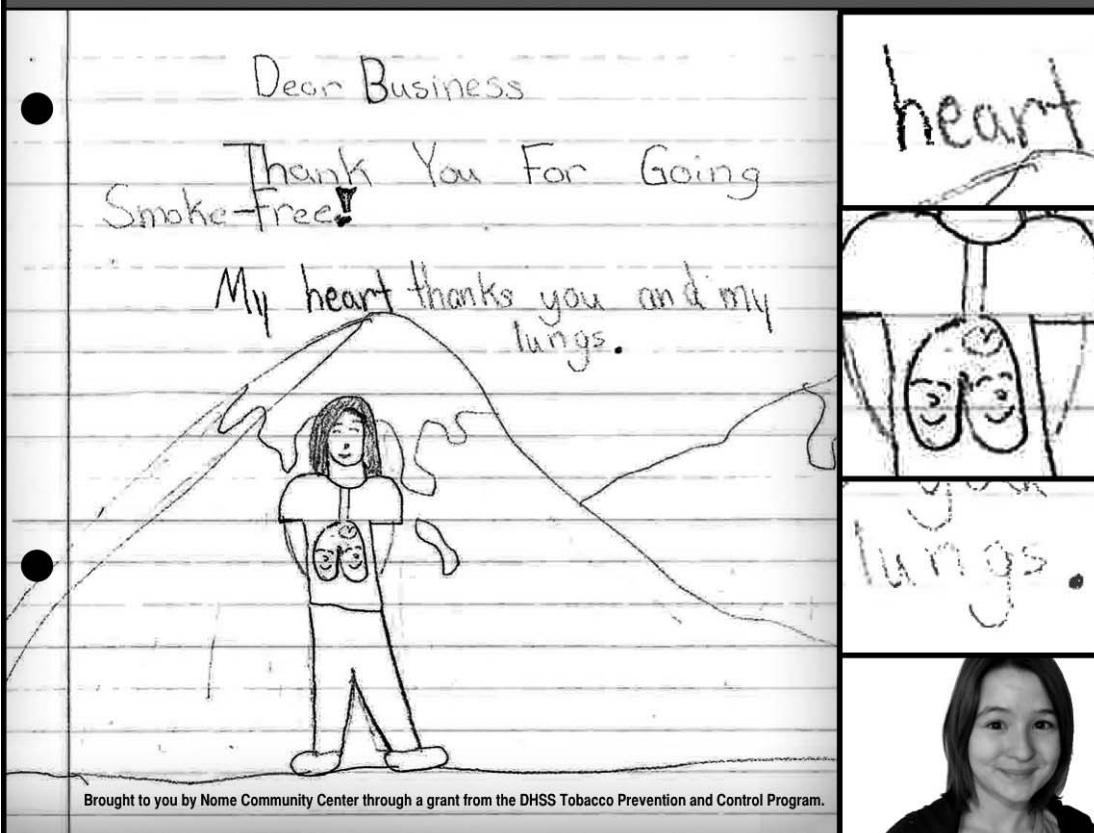 Dear Business
Thank You For Going
Smoke-free!
My heart thanks you and my
lungs.
Brought to you by Nome Community Center through a grant from the DHSS Tobacco Prevention and Control Program.
heart
lungs.